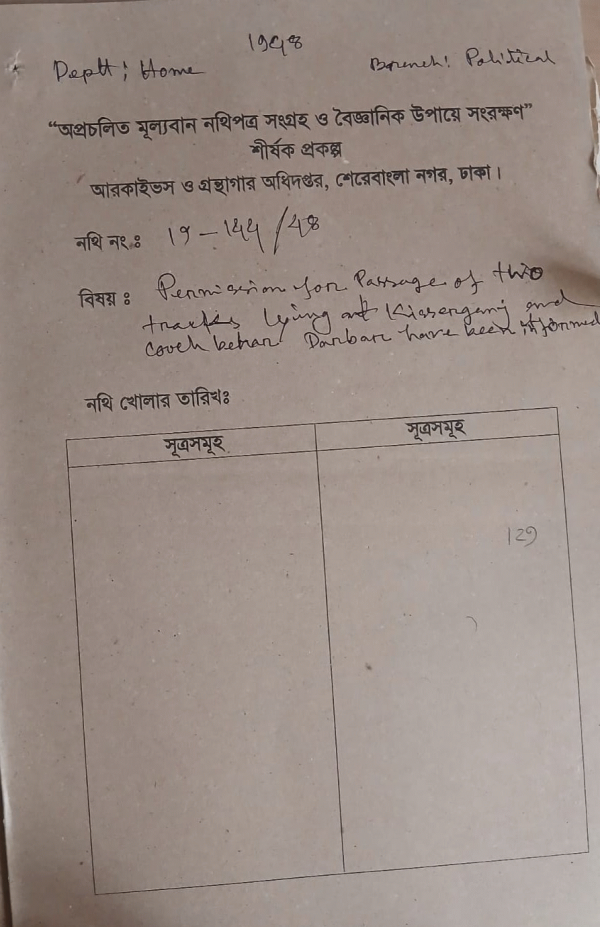 1948
Deptt: Home Branch: Political
"অপ্রচলিত মূল্যবান নথিপত্র সংগ্রহ ও বৈজ্ঞানিক উপায়ে সংরক্ষণ"
শীর্ষক প্রকল্প
আরকাইভস ও গ্রন্থাগার অধিদপ্তর, শেরেবাংলা নগর, ঢাকা।
নথি নং: 19-144/48
বিষয়: Permission for Passage of two
trucks lying at and
Cooch behar Darbar have been informed
নথি খোলার তারিখঃ
সূত্রসমূহ সূত্রসমূহ
129